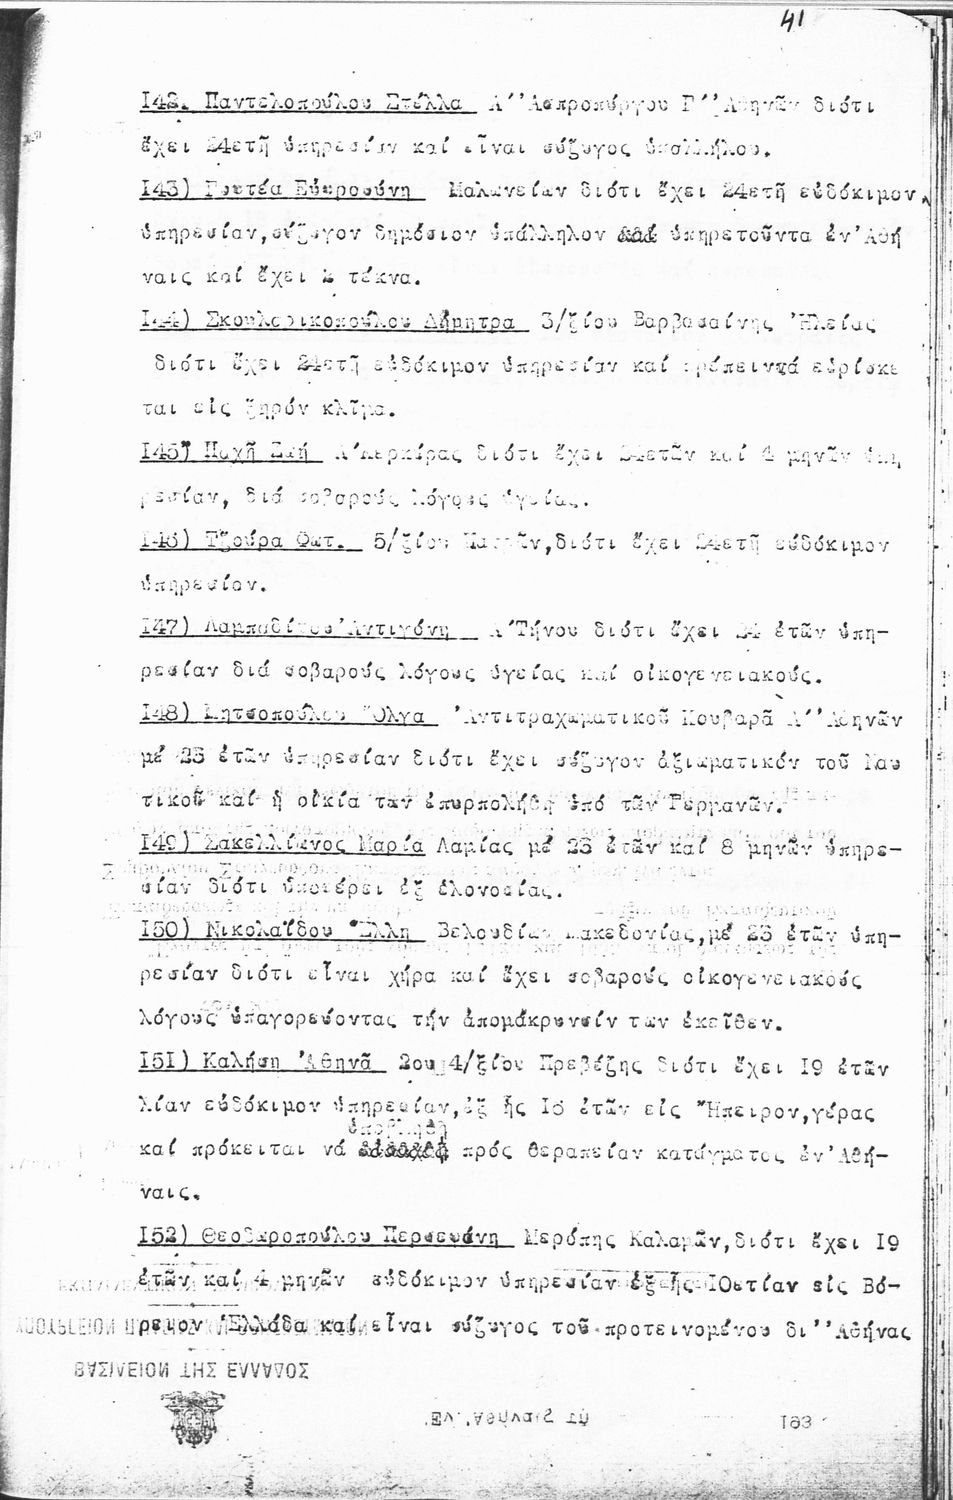 41
I42. Παντελοπούλου Στέλλα Α΄'Ασπροπύργου Γ΄'Αθηνῶν διότι
ἔχει 24ετῆ ὑπηρεσίαν καί εἶναι σύζυγος ὑπαλλήλου.
I43) Γουτέα Εὐφροσύνη Μαλωνείων διότι ἔχει 24ετῆ εὐδόκιμον
ὑπηρεσίαν,σύζυγον δημόσιον ὑπάλληλον ὑπηρετοῦντα ἐν'Αθή
ναις καί ἔχει 2 τέκνα.
I44) Σκουλαρικοπούλου Δήμητρα 3/ξίου Βαρβασαίνης 'Ηλείας
διότι ἔχει 24ετῆ εὐδόκιμον ὑπηρεσίαν καί πρέπει νά εὑρίσκε
ται εἰς ξηρόν κλῖμα.
I45) Ζωή Α΄Κερκύρας διότι ἔχει 24ετῶν καί 4 μηνῶν ὑπη
ρεσίαν, διά σοβαρούς λόγους ὑγείας.
I46) Τζούρα Φωτ. 5/ξίου Πατρῶν,διότι ἔχει 24ετῆ εὐδόκιμον
ὑπηρεσίον.
I47) Λαμπαδίτου'Αντιγόνη Α΄Τήνου διότι ἔχει 24 ἐτῶν ὑπη-
ρεσίαν διά σοβαρούς λόγους ὑγείας καί οἰκογενειακούς.
I48) Μητσοπούλου "Ολγα 'Αντιτραχωματικοῦ Κουβαρᾶ Α΄'Αθηνῶν
μέ 23 ἐτῶν ὑπηρεσίαν διότι ἔχει σύζυγον ἀξιωματικόν τοῦ Ναυ
τικοῦ καί ἡ οἰκία των ἐπυρπολήθη ὑπό τῶν Γερμανῶν.
I49) Σακελλίωνος Μαρία Λαμίας μέ 23 ἐτῶν καί 8 μηνῶν ὑπηρε-
σίαν διότι ὑποφέρει ἐξ ἑλονοσίας.
I50) Νικολαΐδου Ἕλλη Βελουδίων Μακεδονίας,μέ 23 ἐτῶν ὑπη-
ρεσίαν διότι εἶναι χήρα καί ἔχει σοβαρούς οἰκογενειακούς
λόγους ὑπαγορεύοντας τήν ἀπομάκρυνσίν των ἐκεῖθεν.
I51) Καλήση 'Αθηνᾶ 2ου 4/ξίου Πρεβέζης διότι ἔχει I9 ἐτῶν
λίαν εὐδόκιμον ὑπηρεσίαν,ἐξ ἧς ἐτῶν εἰς "Ηπειρον,γέρας
ὑποβληθῆ
καί πρόκειται νά πρός θεραπείαν κατάγματος ἐν'Αθή-
ναις.
I52) Θεοδωροπούλου Περσεφόνη Μερόπης Καλαμῶν,διότι ἔχει I9
ἐτῶν καί 4 μηνῶν εὐδόκιμον ὑπηρεσίαν ἐξ ἧς IOετίαν εἰς Βό-
ρειον 'Ελλάδα καί εἶναι σύζυγος τοῦ προτεινομένου δι''Αθήνας
ΒΑΣΙΛΕΙΟΝ ΤΗΣ ΕΛΛΑΔΟΣ
'Εν 'Αθήναις τῇ I93